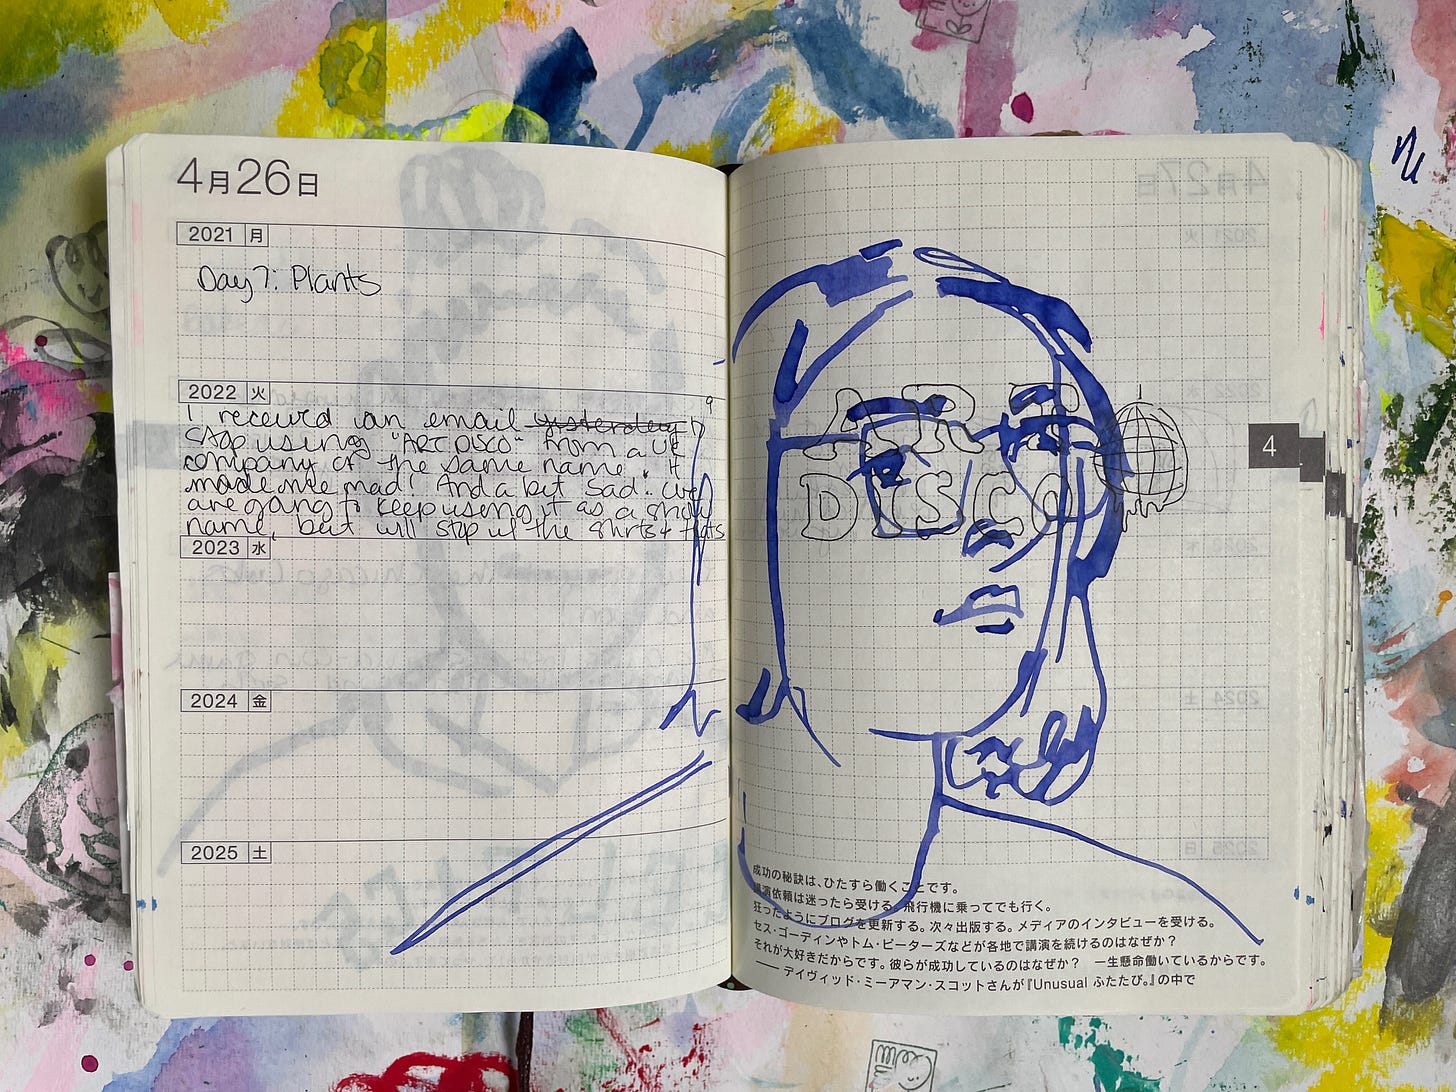 4月26日
2021 月
Day 7: Plants
2022 火
I received an email yesterday to
stop using "ART DISCO" from a UK
company of the same name. It
made me mad! And a bit sad. We
are going to keep using it as a show
name, but will stop w/ the shirts + hats
2023 水
2024 金
2025 土
ART
DISCO
4
成功の秘訣は、ひたすら働くことです。
講演依頼は迷ったら受ける。飛行機に乗ってでも行く。
狂ったようにブログを更新する。次々出版する。メディアのインタビューを受ける。
セス・ゴーディンやトム・ピーターズなどが各地で講演を続けるのはなぜか？
それが大好きだからです。彼らが成功しているのはなぜか？　一生懸命働いているからです。
―― デイヴィッド・ミーアマン・スコットさんが『Unusual ふたたび。』の中で